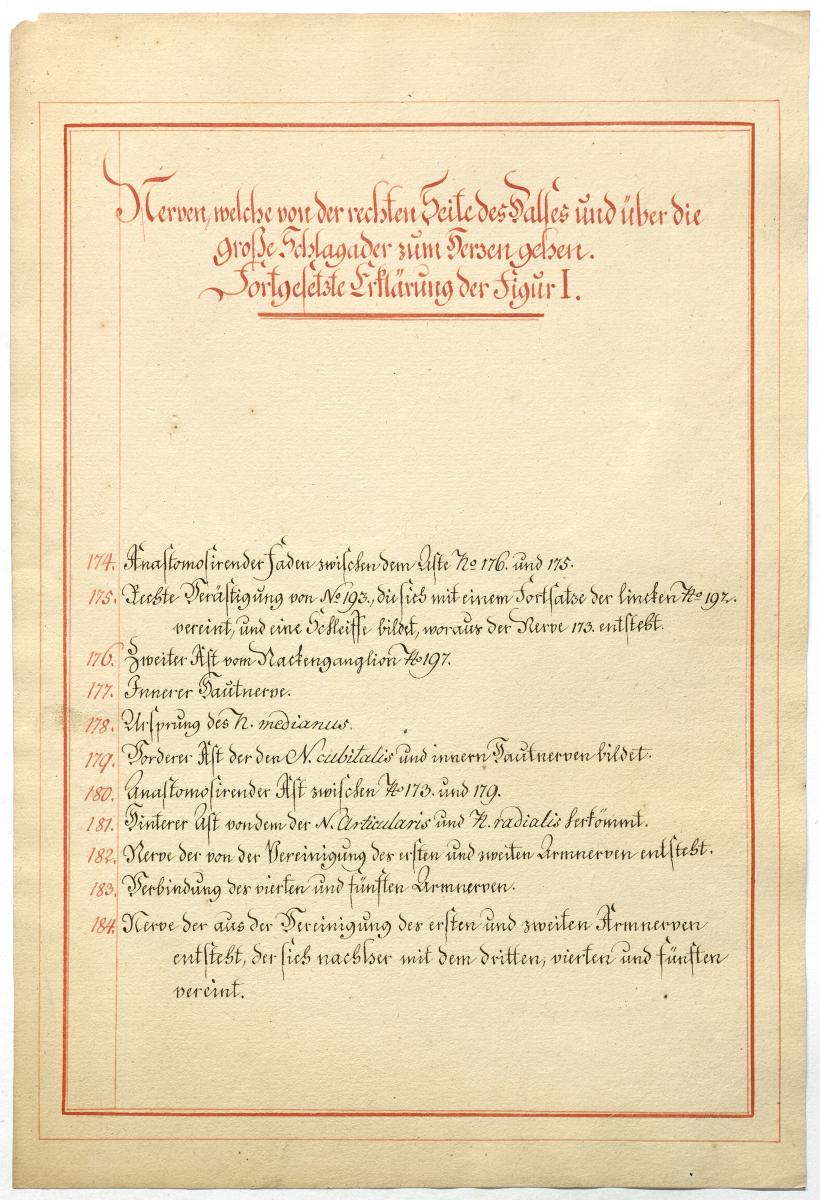 Nerven, welche von der rechten Seite des Halses und über die
große Schlagader zum Herzen gehen.
Fortgesetzte Erklärung der Figur I.
174. Anastomosirender Faden zwischen dem Aste No 176. und 175.
175. Rechte Verästigung von No 193., die sich mit einem Fortsatze der lincken No 192.
vereint, und eine Schleiffe bildet, woraus der Nerve 173. entsteht.
176. Zweiter Ast vom Nackenganglion No 197.
177. Innerer Hautnerve.
178. Ursprung des N. medianus.
179. Vorderer Ast der den N. cubitalis und innern Hautnerven bildet.
180. Anastomosirender Ast zwischen No 173. und 179.
181. Hinterer Ast von dem der N. Articularis und N. radialis herkömmt.
182. Nerve der von der Vereinigung des ersten und zweiten Armnerven entsteht.
183. Verbindung des vierten und fünften Armnerven.
184. Nerve der aus der Vereinigung des ersten und zweiten Armnerven
entsteht, der sich nachher mit dem dritten, vierten und fünften
vereint.